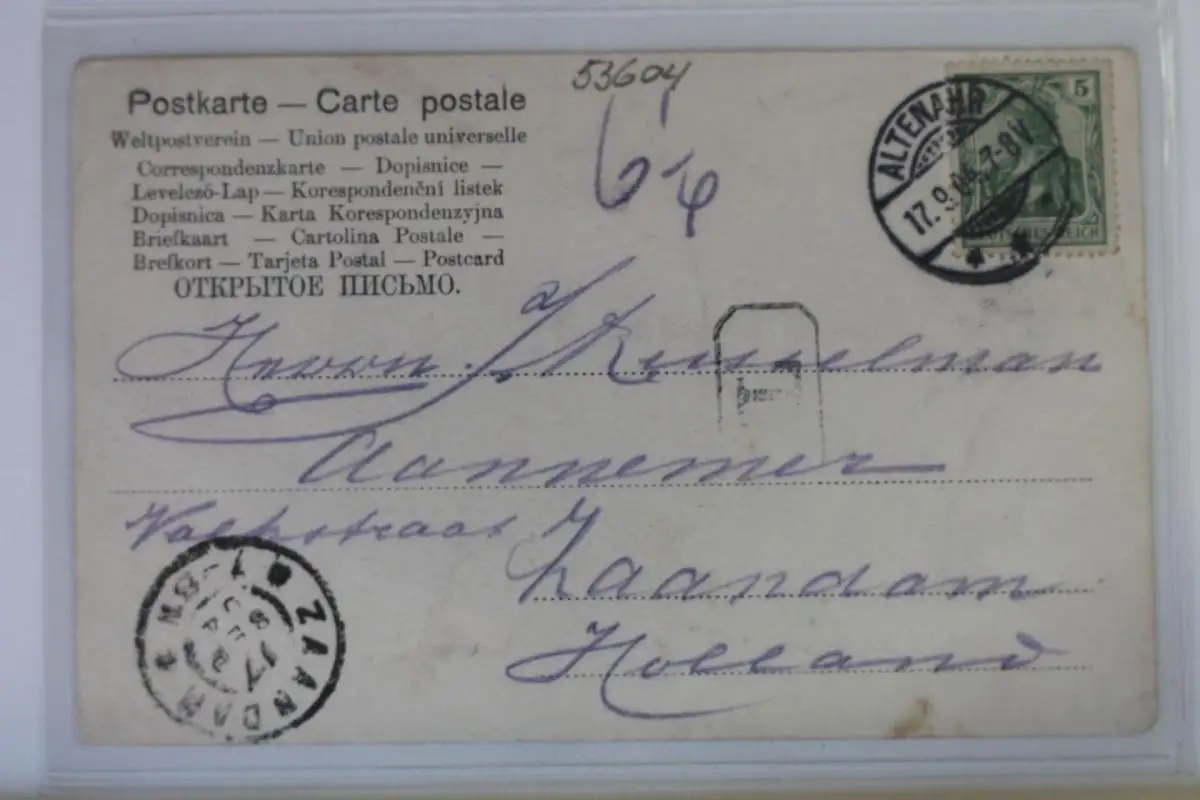 53604
Postkarte — Carte postale
Weltpostverein — Union postale universelle
Correspondenzkarte — Dopisnice —
Levelező-Lap — Korespondenční listek
Dopisnica — Karta Korespondenzyjna
Briefkaart — Cartolina Postale —
Brefkort — Tarjeta Postal — Postcard
ОТКРЫТОЕ ПИСЬМО.
ALTENAHR
17.9.04. 7-8V.
5
DEUTSCHES REICH
T
Herrn
Aannemer
Zaandam
Holland
ZAANDAM
17 SEP
7-8N